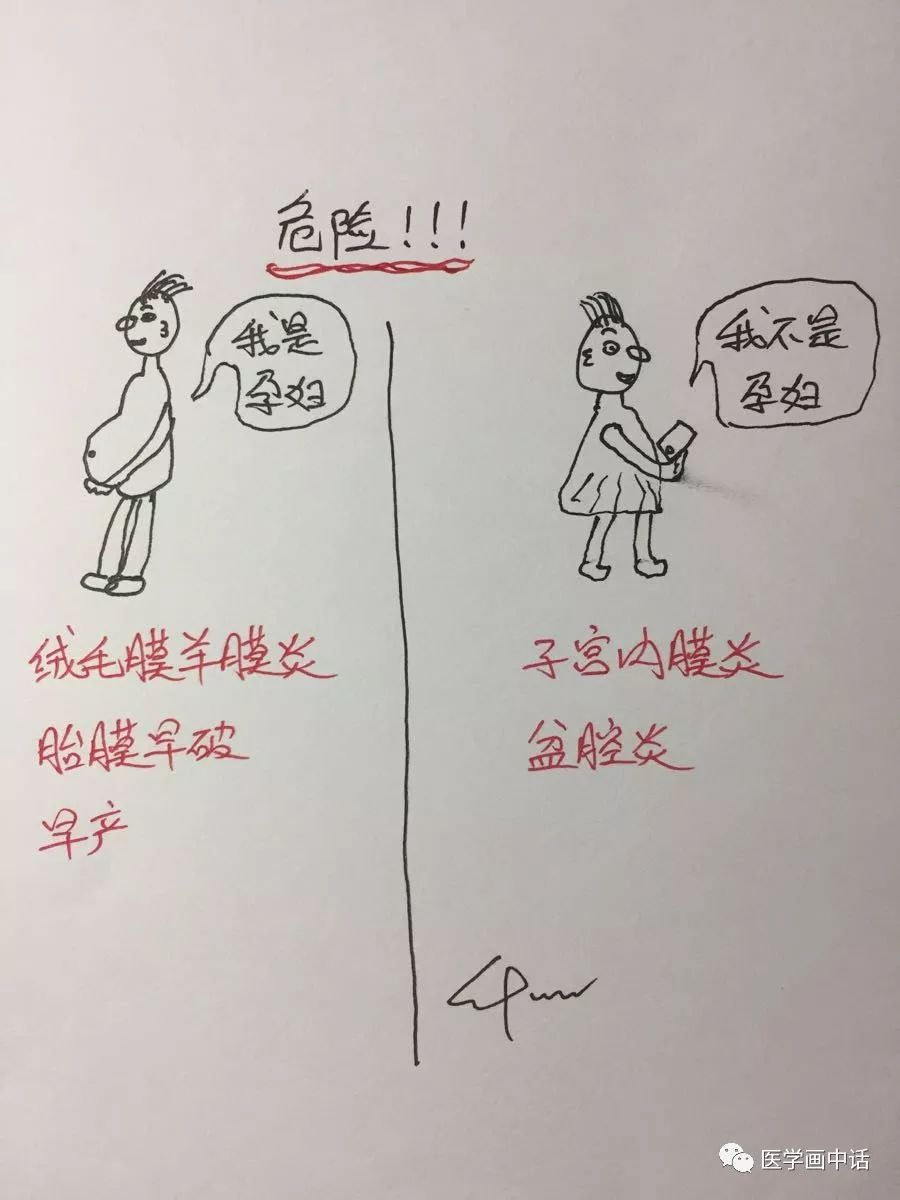 危险!!!
我是
孕妇
绒毛膜羊膜炎
胎膜早破
早产
我不是
孕妇
子宫内膜炎
盆腔炎
医学画中话